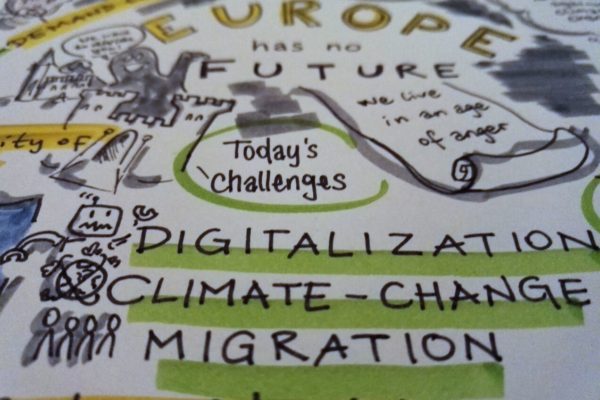 DEMAND
EUROPE
has no
FUTURE
we live
in an age
of anger
ity of
Today's
Challenges
DIGITALIZATION
CLIMATE-CHANGE
MIGRATION